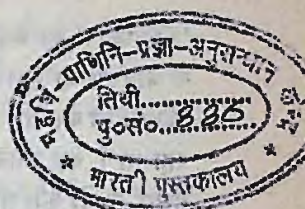 महर्षि-पाणिनि-प्रज्ञा-अनुसन्धान
तिथी..............
पु०सं०..........
* भारती पुस्तकालय *